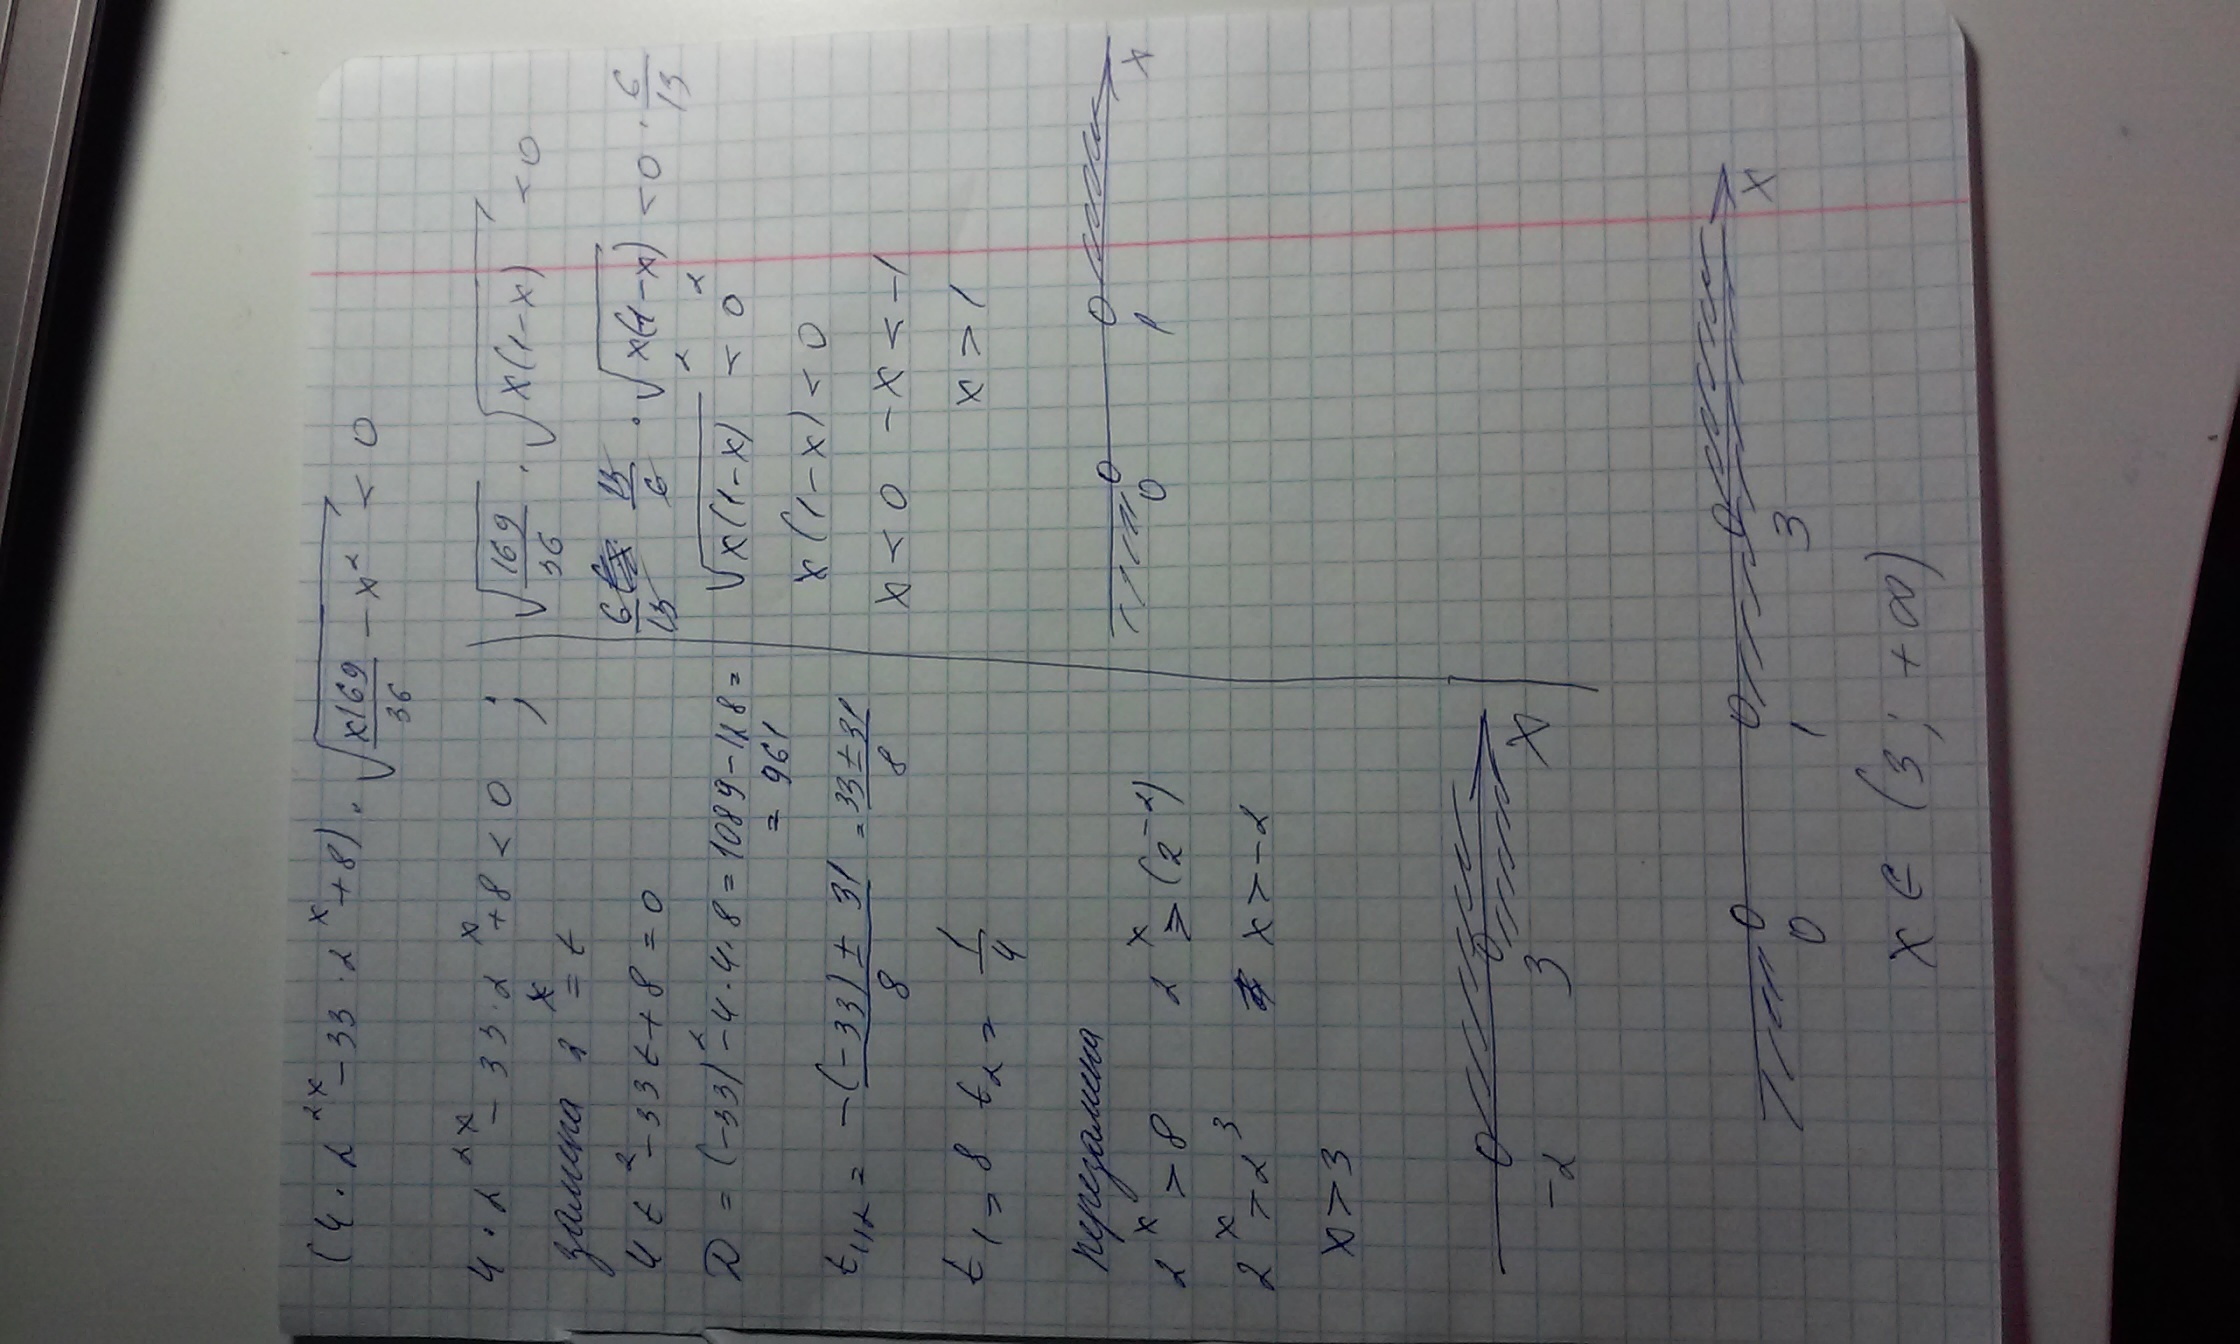 (4 · 2^{2x} - 33 · 2^x + 8) · √(x169/36 - x²) < 0
4 · 2^{2x} - 33 · 2^x + 8 < 0 ;
замена 2^x = t
4t² - 33t + 8 = 0
D = (-33)² - 4·4·8 = 1089 - 128 =
= 961
t_{1,2} = (-(-33) ± 31)/8 = (33 ± 31)/8
t_1 = 8 t_2 = 1/4
перезамена
2^x > 8 2^x ≥ (2^{-2})
2^x > 2^3 x > -2
x > 3
-2 3 x
√(169/36) · √(x(1-x)) < 0
6/13 13/6 · √(x(1-x)) < 0 · 6/13
√(x(1-x))² < 0²
x(1-x) < 0
x < 0 -x < -1
x > 1
0 1 x
0 1 3 x
x ∈ (3; +∞)